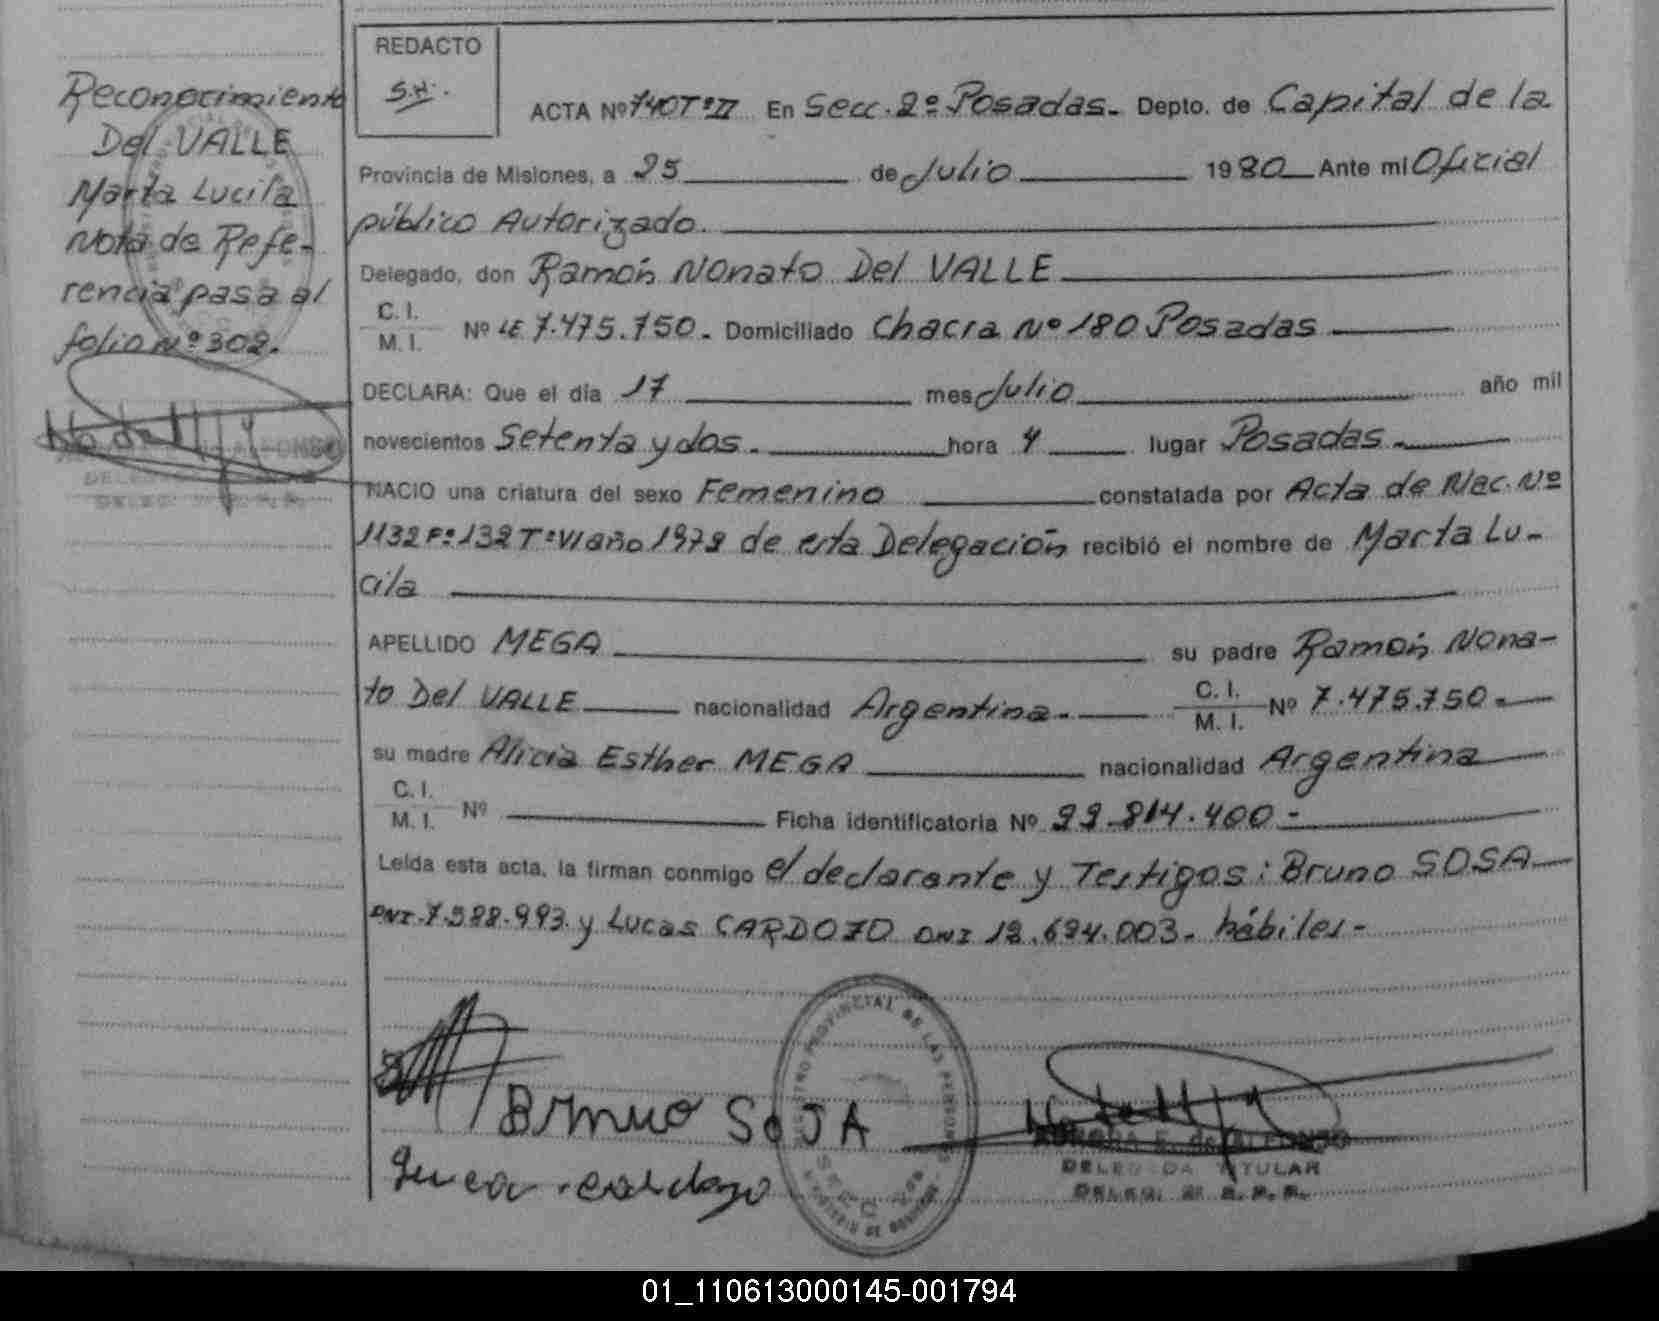 Reconocimiento
Del VALLE
Marta Lucila
Nota de Refe-
rencia pasa al
folio Nº 302.
REDACTO
S.H.
ACTA Nº 740 Tº II En Secc. 2º Posadas. Depto. de Capital de la
Provincia de Misiones, a 25 de Julio 1980 Ante mi Oficial
público Autorizado.
Delegado, don Ramón Nonato Del VALLE
C. I.
M. I. Nº LE 7.475.750. Domiciliado Chacra Nº 180 Posadas
DECLARA: Que el día 17 mes Julio año mil
novecientos Setenta y dos. hora 4 lugar Posadas.
NACIO una criatura del sexo Femenino constatada por Acta de Nac. Nº
1132 Fº 132 Tº VI año 1972 de esta Delegación recibió el nombre de Marta Lu-
cila
APELLIDO MEGA su padre Ramón Nona-
to Del VALLE nacionalidad Argentina. C. I.
M. I. Nº 7.475.750.
su madre Alicia Esther MEGA nacionalidad Argentina
C. I.
M. I. Nº Ficha identificatoria Nº 22.814.400
Leída esta acta, la firman conmigo el declarante y Testigos: Bruno SOSA
DNI. 7.588.993. y Lucas CARDOZO DNI 12.694.003. hábiles-
Bruno SOSA
Lucas Cardozo
REGISTRO PROVINCIAL DE LAS PERSONAS
MINISTERIO DE GOBIERNO
DELEGADA TITULAR
01_110613000145-001794